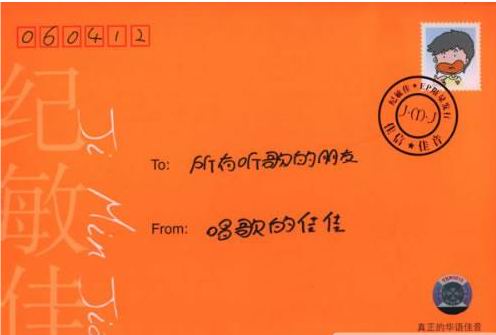 060412
纪敏佳
Ji Min Jia
纪敏佳★EP限量发行
J·M·J
佳信★佳音
To: 所有听歌的朋友
From: 唱歌的佳佳
真正的华语佳音